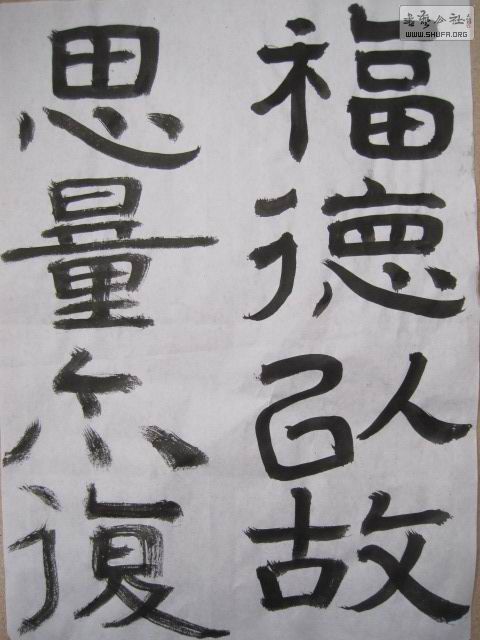 福德以故
思量尓復
书法公社
WWW.SHUFA.ORG